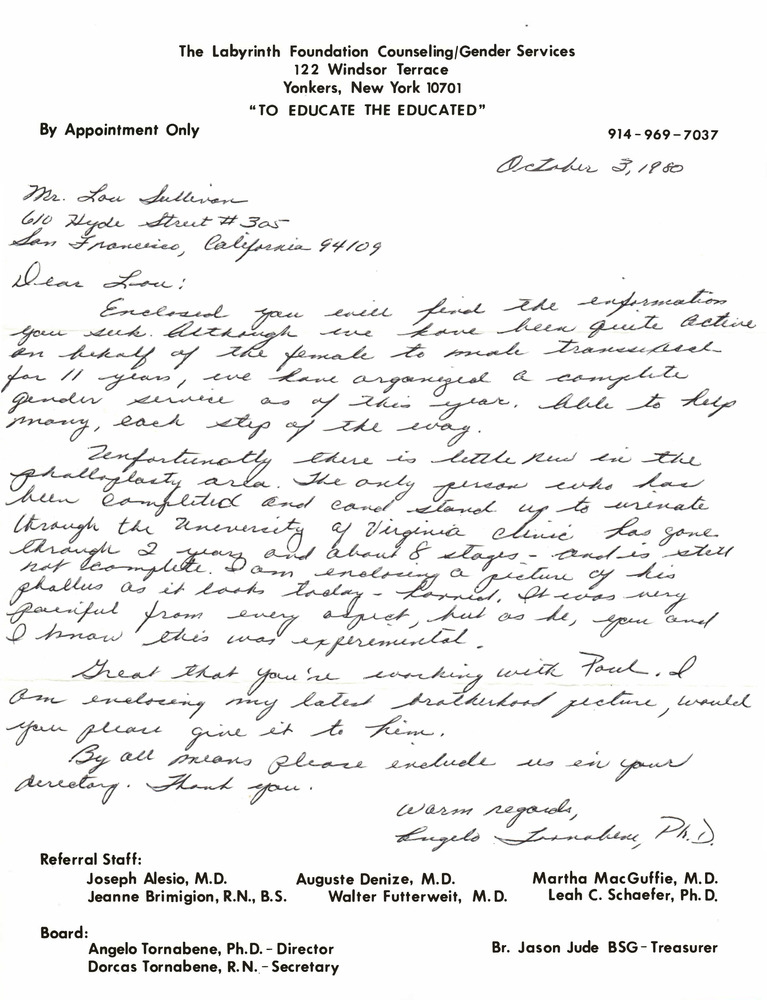 The Labyrinth Foundation Counseling/Gender Services
122 Windsor Terrace
Yonkers, New York 10701
"TO EDUCATE THE EDUCATED"
By Appointment Only
914-969-7037
October 3, 1980
Mr. Lou Sullivan
610 Hyde Street # 305
San Francisco, California 94109
Dear Lou:
Enclosed you will find the information
you seek. Although we have been quite active
on behalf of the female to male transsexual
for 11 years, we have organized a complete
gender service as of this year. Able to help
many, each step of the way.
Unfortunatly there is little new in the
phalloplasty area. The only person who has
been completed and cand stand up to urinate
through the University of Virginia clinic has gone
through 2 years and about 8 stages - and is still
not complete. I am enclosing a picture of his
phallus as it looks today - . It was very
painful from every aspect, but as he, you and
I know this was experimental.
Great that you're working with Paul. I
am enclosing my latest brotherhood picture, would
you please give it to him.
By all means please include us in your
directory. Thank you.
Warm regards,
Angelo Tornabene, Ph.D.
Referral Staff:
Joseph Alesio, M.D. Auguste Denize, M.D. Martha MacGuffie, M.D.
Jeanne Brimigion, R.N., B.S. Walter Futterweit, M.D. Leah C. Schaefer, Ph.D.
Board:
Angelo Tornabene, Ph.D. - Director Br. Jason Jude BSG - Treasurer
Dorcas Tornabene, R.N. - Secretary